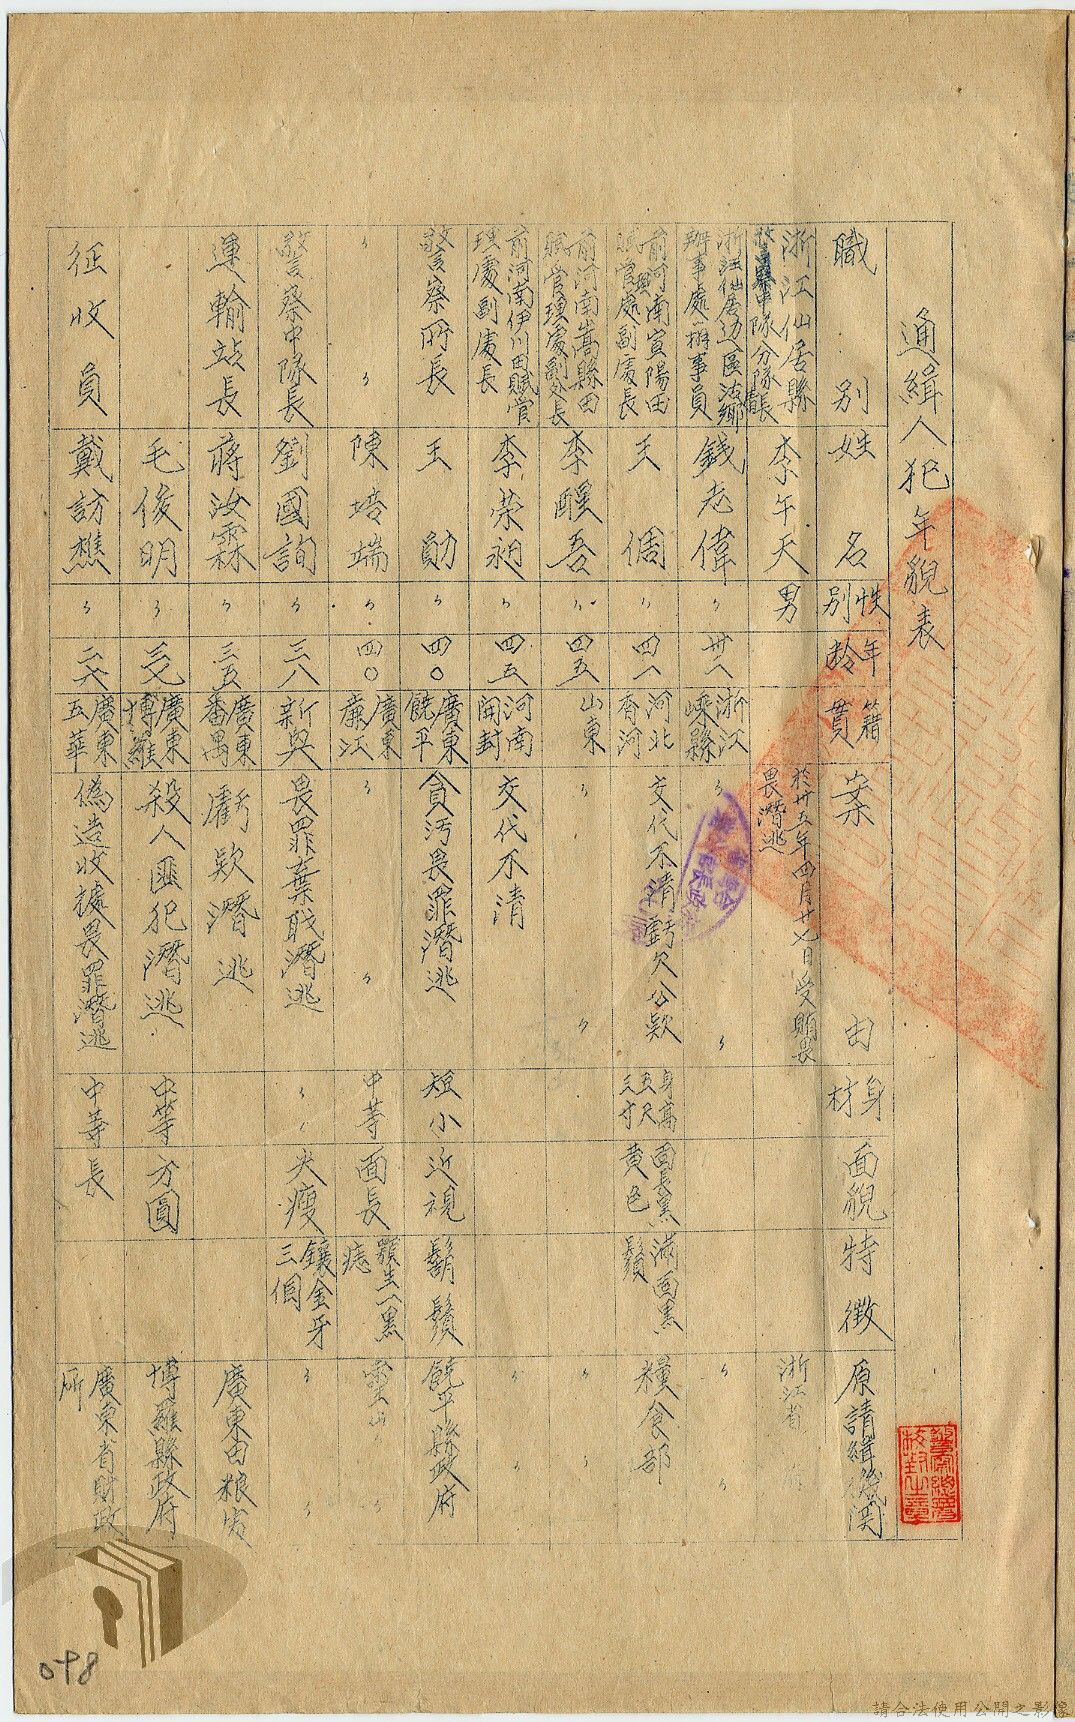 通緝人犯年貌表
職別 姓名 性別 年齡 籍貫 案由 身材 面貌 特徵 原請緝機関
浙江仙居縣警察中隊分隊長 李午天 男 於卅五年四月廿七日受賄畏畏潛逃 浙江省
浙江仙居边區 辦事處辦事員 錢志偉 〃 卅一 浙江嵊縣 〃 〃 〃
前河南宣陽田賦管理處副處長 王倜 〃 四一 河北香河 交代不清虧欠公欵 身高五尺三寸 面長黑黄色 滿面黑鬚 糧食部
前河南嵩縣田賦管理處副处長 李醒吾 〃 四五 山東 〃 〃 〃 〃
前河南伊川田賦管理處副處長 李荣昶 〃 四五 河南開封 交代不清 〃 〃
警察所長 王勛 〃 四〇 廣東饒平 貪污畏罪潛逃 短小 近視 鬍鬚 饒平縣政府
〃 〃 陳培端 〃 四〇 廣東廉江 〃 〃 中等 面長 顎生一黑痣 靈山 〃 〃
警察中隊長 劉國詢 〃 三八 新興 畏罪棄職潛逃 〃 〃 尖瘦 鑲金牙三個 〃 〃
運輸站長 蔣汝霖 〃 三五 廣東番禺 虧欵潛逃 廣東田粮處
毛俊明 〃 廣東博羅 殺人匪犯潛逃 中等 方圓 博羅縣政府
征收員 戴訪樵 〃 二六 廣東五華 偽造收據畏罪潛逃 中等 長 廣東省財政所
098
請合法使用公開之影像